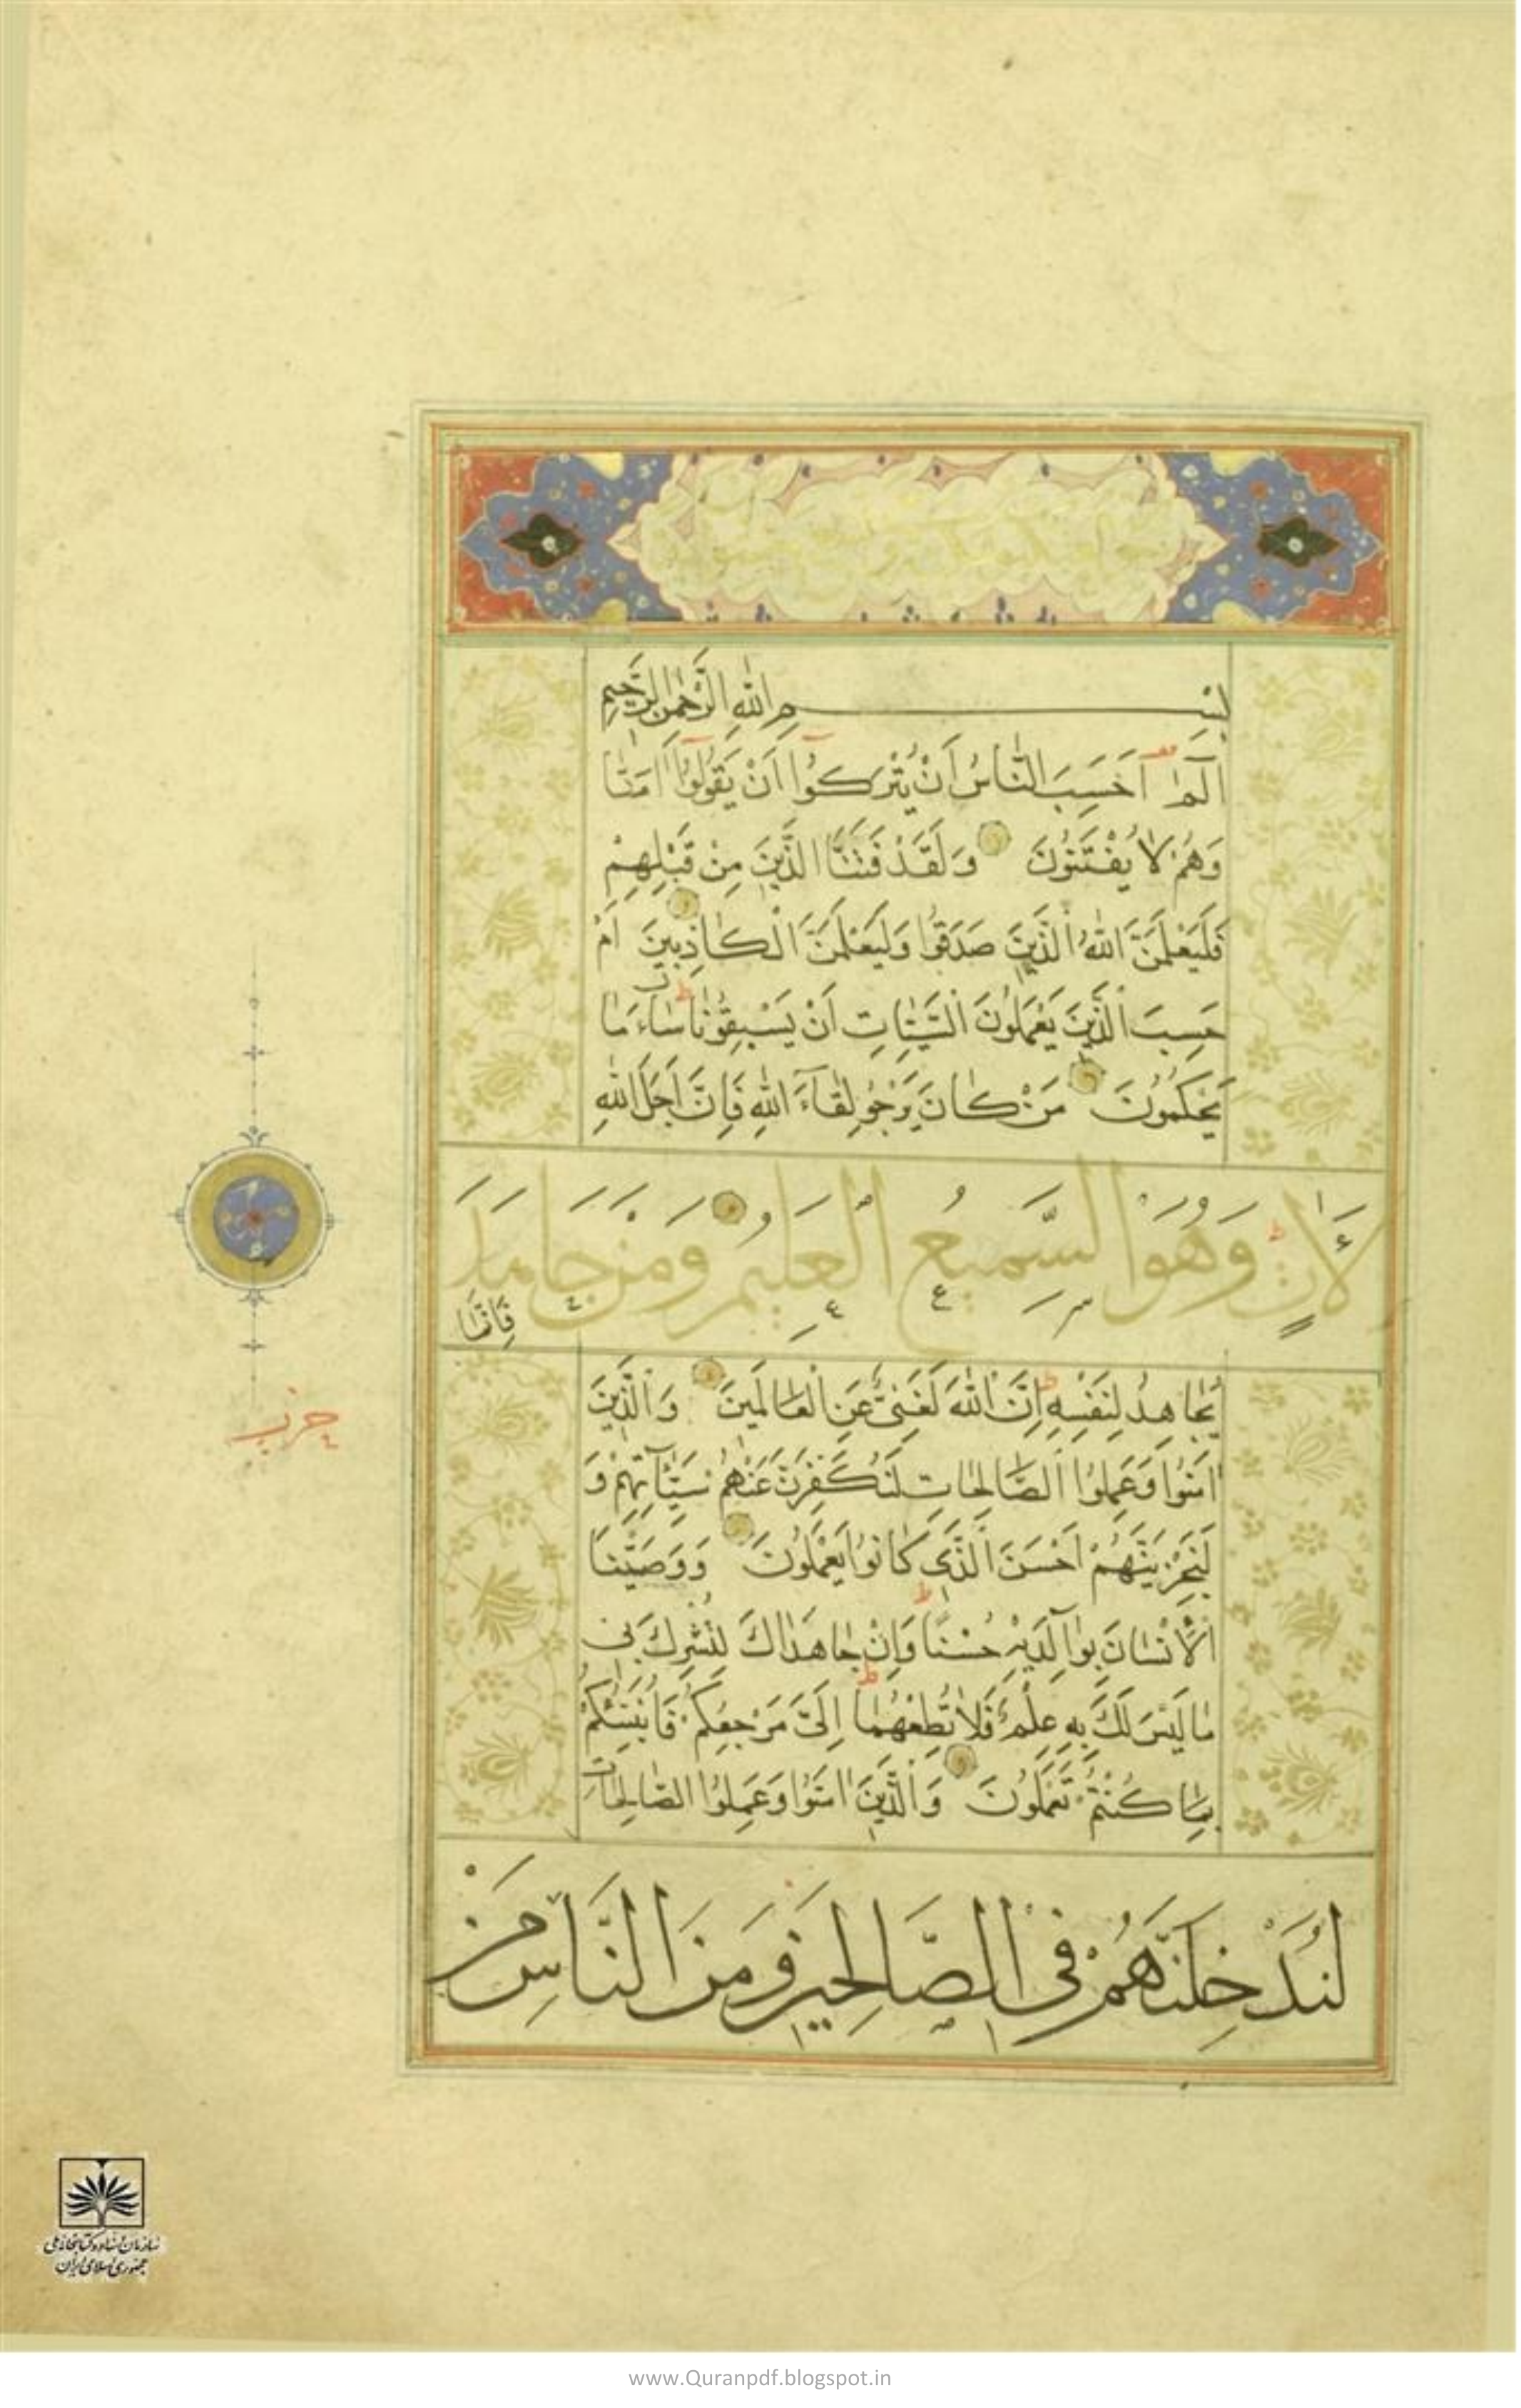 بِسْمِ اللّٰهِ الرَّحْمٰنِ الرَّحِيمِ
الٓمٓ اَحَسِبَ النَّاسُ اَنْ يُتْرَكُوٓا اَنْ يَقُولُوٓا اٰمَنَّا
وَهُمْ لَا يُفْتَنُونَ وَلَقَدْ فَتَنَّا الَّذِينَ مِنْ قَبْلِهِمْ
فَلَيَعْلَمَنَّ اللّٰهُ الَّذِينَ صَدَقُوا وَلَيَعْلَمَنَّ الْكَاذِبِينَ اَمْ
حَسِبَ الَّذِينَ يَعْمَلُونَ السَّيِّئَاتِ اَنْ يَسْبِقُونَا سَاءَ مَا
يَحْكُمُونَ مَنْ كَانَ يَرْجُو لِقَآءَ اللّٰهِ فَاِنَّ اَجَلَ اللّٰهِ
لَاٰتٍ وَهُوَ السَّمِيعُ الْعَلِيمُ وَمَنْ جَاهَدَ
فَاِنَّمَا
يُجَاهِدُ لِنَفْسِهِ اِنَّ اللّٰهَ لَغَنِيٌّ عَنِ الْعَالَمِينَ وَالَّذِينَ
اٰمَنُوا وَعَمِلُوا الصَّالِحَاتِ لَنُكَفِّرَنَّ عَنْهُمْ سَيِّئَاتِهِمْ وَ
لَنَجْزِيَنَّهُمْ اَحْسَنَ الَّذِي كَانُوا يَعْمَلُونَ وَوَصَّيْنَا
الْاِنْسَانَ بِوَالِدَيْهِ حُسْنًا وَاِنْ جَاهَدَاكَ لِتُشْرِكَ بِي
مَا لَيْسَ لَكَ بِهِ عِلْمٌ فَلَا تُطِعْهُمَا اِلَيَّ مَرْجِعُكُمْ فَاُنَبِّئُكُمْ
بِمَا كُنْتُمْ تَعْمَلُونَ وَالَّذِينَ اٰمَنُوا وَعَمِلُوا الصَّالِحَاتِ
لَنُدْخِلَنَّهُمْ فِي الصَّالِحِينَ وَمِنَ النَّاسِ مَنْ
حزب
سازمان اسناد و کتابخانه ملی
جمهوری اسلامی ایران
www.Quranpdf.blogspot.in